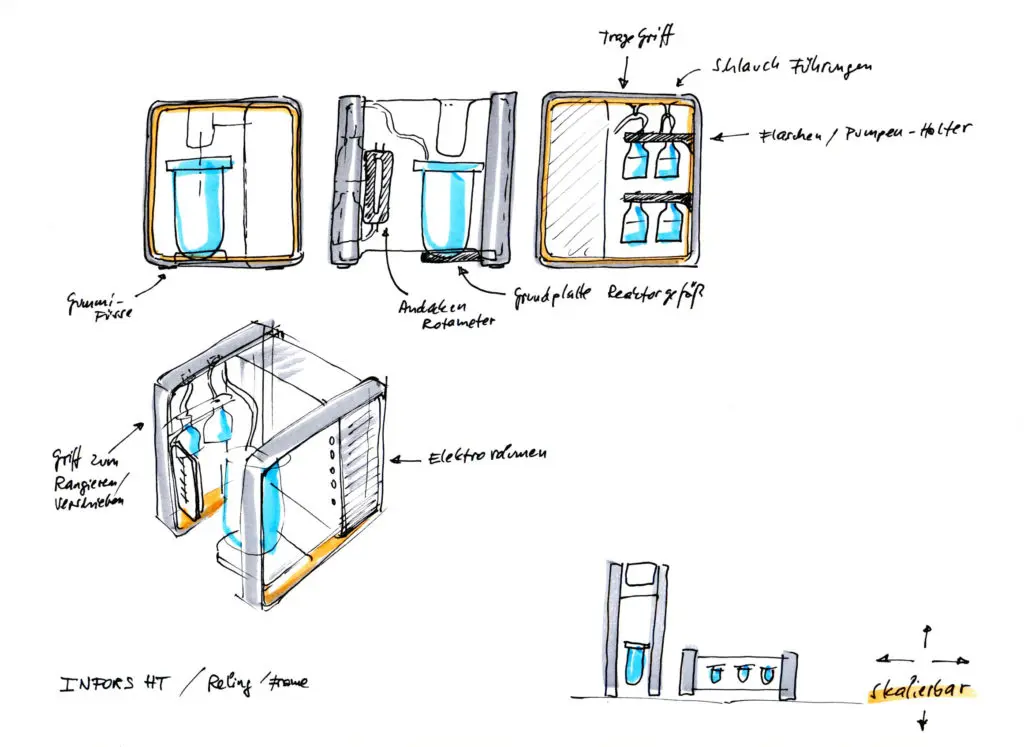 Tragegriff
Schlauch Führungen
Flaschen / Pumpen-Halter
Gummi-
Füsse
Andocken
Rotameter
Grundplatte Reaktorgefäß
Griff zum
Rangieren/
Verschieben
Elektrorahmen
INFORS HT / Reling / Frame
skalierbar